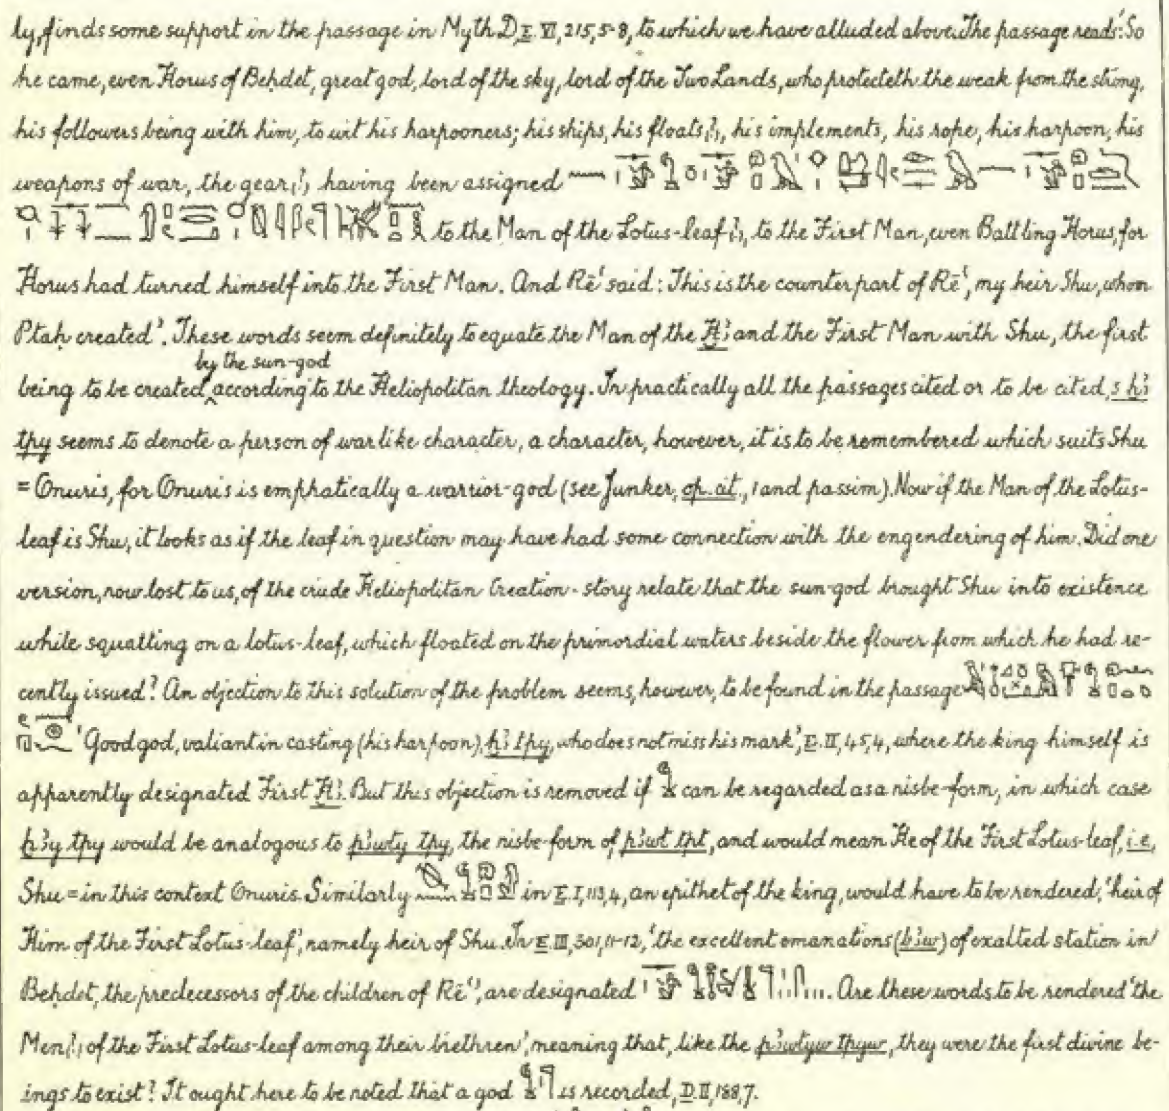 ly, finds some support in the passage in Myth D, E. VI, 215, 5-8, to which we have alluded above. The passage reads: 'So
he came, even Horus of Beḥdet, great god, lord of the sky, lord of the Two Lands, who protecteth the weak from the strong,
his followers being with him, to wit his harpooners; his ships, his floats(?), his implements, his rope, his harpoon, his
weapons of war, the gear(?) having been assigned
to the Man of the Lotus-leaf(?), to the First Man, even Battling Horus, for
Horus had turned himself into the First Man. And Rēʿ said: This is the counterpart of Rēʿ, my heir Shu, whom
Ptaḥ created'. These words seem definitely to equate the Man of the Ḫꜣ and the First Man with Shu, the first
being to be created by the sun-god according to the Heliopolitan theology. In practically all the passages cited or to be cited, s ḫꜣ
tpy seems to denote a person of warlike character, a character, however, it is to be remembered which suits Shu
= Onuris, for Onuris is emphatically a warrior-god (see Junker, op. cit., 1 and passim). Now if the Man of the Lotus-
leaf is Shu, it looks as if the leaf in question may have had some connection with the engendering of him. Did one
version, now lost to us, of the crude Heliopolitan Creation-story relate that the sun-god brought Shu into existence
while squatting on a lotus-leaf, which floated on the primordial waters beside the flower from which he had re-
cently issued? An objection to this solution of the problem seems, however, to be found in the passage
'Good god, valiant in casting (his harpoon), ḫꜣ tpy, who does not miss his mark', E. II, 45, 4, where the king himself is
apparently designated First Ḫꜣ. But this objection is removed if can be regarded as a nisbe-form, in which case
ḫꜣy tpy would be analogous to pꜣwty tpy, the nisbe-form of pꜣwt tpt, and would mean He of the First Lotus-leaf, i.e.,
Shu = in this context Onuris. Similarly in E. I, 113, 4, an epithet of the king, would have to be rendered, 'heir of
Him of the First Lotus-leaf', namely heir of Shu. In E. III, 301, 11-12, 'the excellent emanations (bꜣw) of exalted station in
Beḥdet, the predecessors of the children of Rēʿ', are designated Are these words to be rendered 'the
Men(?) of the First Lotus-leaf among their brethren', meaning that, like the pꜣwtyw tpyw, they were the first divine be-
ings to exist? It ought here to be noted that a god is recorded, D. II, 188, 7.